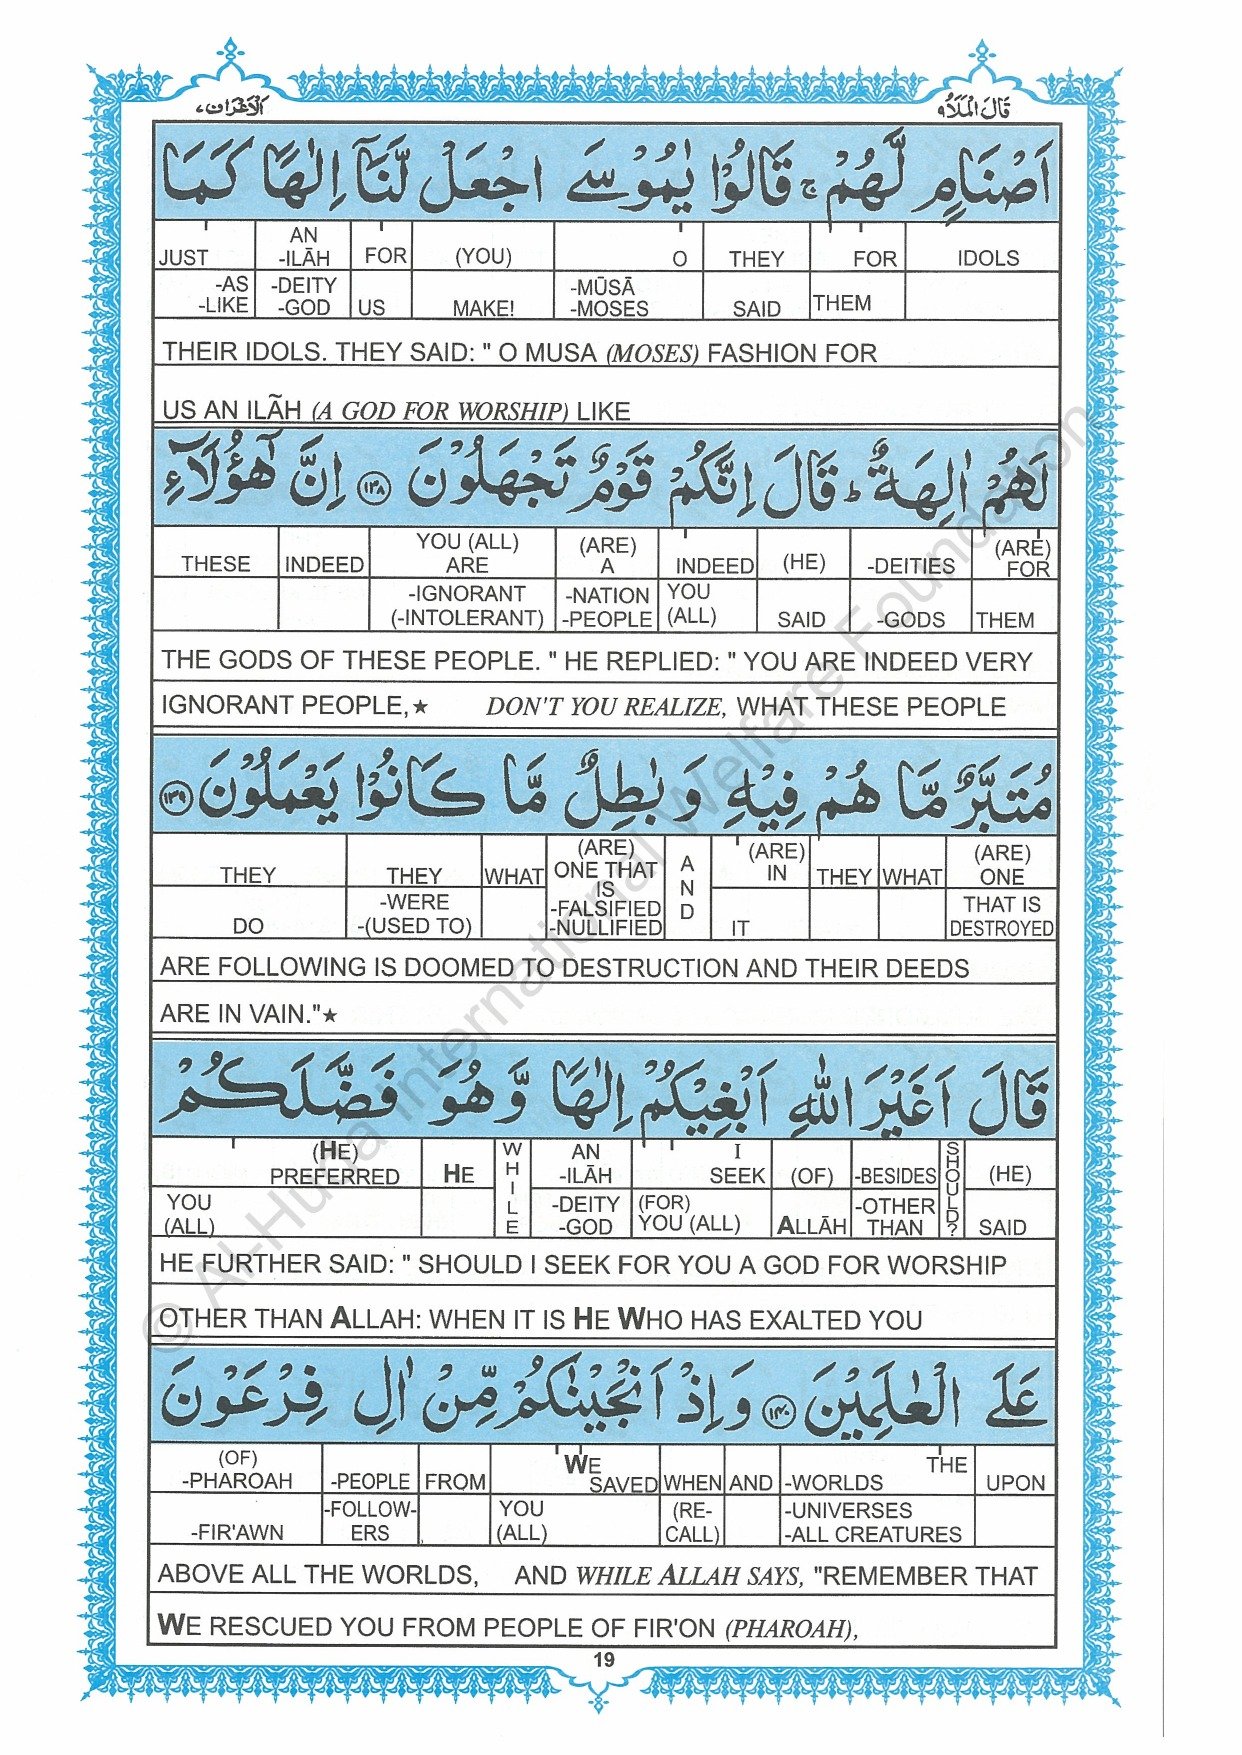 قَالَ الْمَلَاُ ٩
اَلْاَعْرَاف ٧
اَصْنَامٍ لَّهُمْ ۚ قَالُوْا يٰمُوْسَى اجْعَلْ لَّنَاۤ اِلٰهًا كَمَا
JUST AN -ILĀH FOR (YOU) O THEY FOR IDOLS
-AS -LIKE -DEITY -GOD US MAKE! -MŪSĀ -MOSES SAID THEM
THEIR IDOLS. THEY SAID: " O MUSA (MOSES) FASHION FOR
US AN ILÃH (A GOD FOR WORSHIP) LIKE
لَهُمْ اٰلِهَةٌ ؕ قَالَ اِنَّكُمْ قَوْمٌ تَجْهَلُوْنَ ۝۱۳۸ اِنَّ هٰٓؤُلَآءِ
THESE INDEED YOU (ALL) ARE (ARE) A INDEED (HE) -DEITIES (ARE) FOR
-IGNORANT (-INTOLERANT) -NATION -PEOPLE YOU (ALL) SAID -GODS THEM
THE GODS OF THESE PEOPLE. " HE REPLIED: " YOU ARE INDEED VERY
IGNORANT PEOPLE,★ DON'T YOU REALIZE, WHAT THESE PEOPLE
مُتَبَّرٌ مَّا هُمْ فِيْهِ وَبٰطِلٌ مَّا كَانُوْا يَعْمَلُوْنَ ۝۱۳۹
THEY THEY WHAT (ARE) ONE THAT IS -FALSIFIED -NULLIFIED AND (ARE) IN THEY WHAT (ARE) ONE
DO -WERE -(USED TO) IT THAT IS DESTROYED
ARE FOLLOWING IS DOOMED TO DESTRUCTION AND THEIR DEEDS
ARE IN VAIN."★
قَالَ اَغَيْرَ اللّٰهِ اَبْغِيْكُمْ اِلٰهًا وَّهُوَ فَضَّلَكُمْ
(HE) PREFERRED HE WHILE AN -ILĀH I SEEK (OF) -BESIDES SHOULD? (HE)
YOU (ALL) -DEITY -GOD (FOR) YOU (ALL) ALLĀH -OTHER THAN SAID
HE FURTHER SAID: " SHOULD I SEEK FOR YOU A GOD FOR WORSHIP
OTHER THAN ALLAH: WHEN IT IS HE WHO HAS EXALTED YOU
عَلَى الْعٰلَمِيْنَ ۝۱۴۰ وَاِذْ اَنْجَيْنٰكُمْ مِّنْ اٰلِ فِرْعَوْنَ
(OF) -PHAROAH -PEOPLE FROM WE SAVED WHEN AND THE -WORLDS UPON
-FIR'AWN -FOLLOW-ERS YOU (ALL) (RE-CALL) -UNIVERSES -ALL CREATURES
ABOVE ALL THE WORLDS, AND WHILE ALLAH SAYS, "REMEMBER THAT
WE RESCUED YOU FROM PEOPLE OF FIR'ON (PHAROAH),
19
© Al-Huda International Welfare Foundation